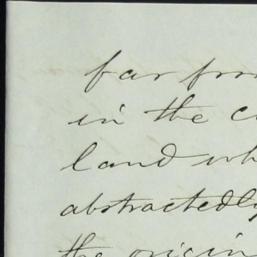 far fro
in the c
land wh
abstractedly
the origin